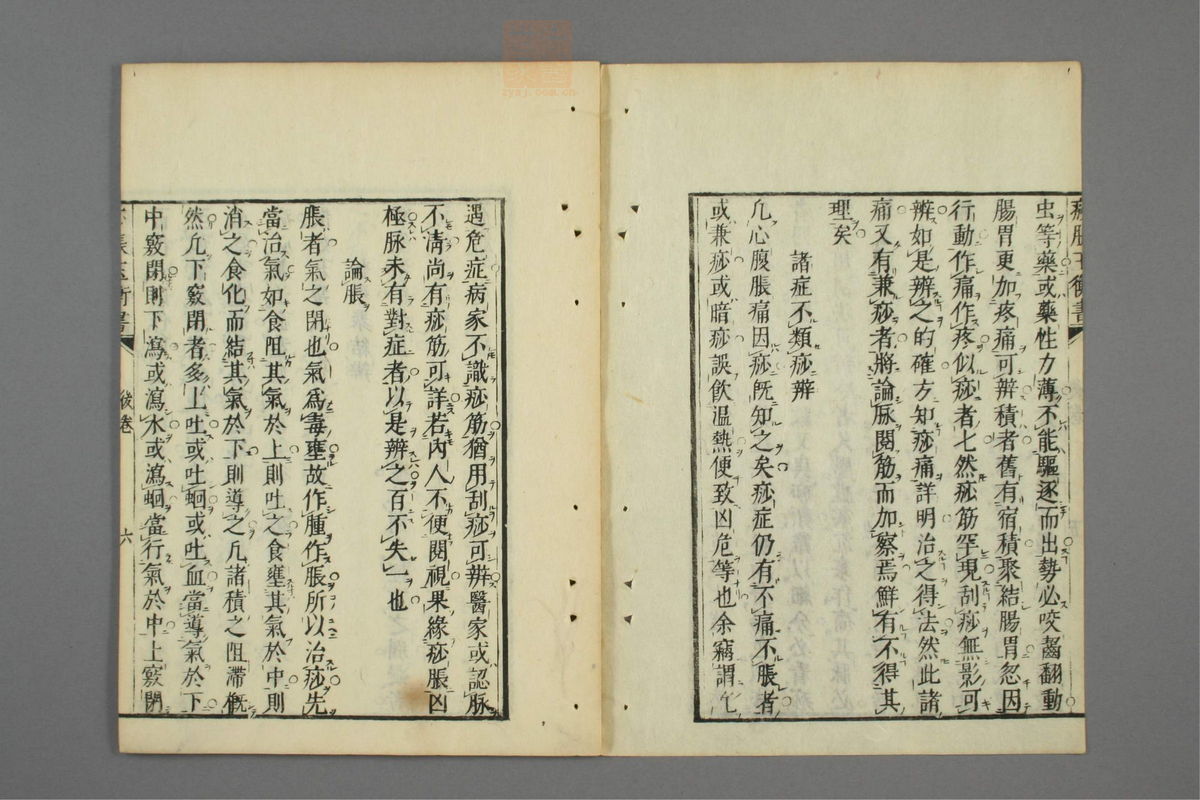 虫等藥或藥性力薄不能驅逐而出勢必咬齧翻動
腸胃更加疼痛可辨積者舊有宿積聚結腸胃忽因
行動作痛作疼似痧者七然痧筋罕現刮痧無影可
辨如是辨之的確方知痧痛詳明治之得法然此諸
痛又有兼痧者將論脉閱筋而加察焉鮮有不得其
理矣
諸症不類痧辨
凢心腹脹痛因痧旣知之矣痧症仍有不痛不脹者
或兼痧或暗痧誤飲温熱便致凶危等也余竊謂凢
遇危症病家不識痧筋猶用刮痧可辨醫家或認脉
不淸尚有痧筋可詳若內人不便閱視果緣痧脹凶
極脉未有對症者以是辨之百不失一也
論脹
脹者氣之閉也氣爲毒壅故作腫作脹所以治痧先
當治氣如食阻其氣於上則吐之食壅其氣於中則
消之食化而結其氣於下則導之凢諸積之阻滯槪
然凢下竅閉者多上吐或吐蛔或吐血當導氣於下
中竅閉則下瀉或瀉水或瀉蛔當行氣於中上竅閉
後卷
六
zysj.com.cn